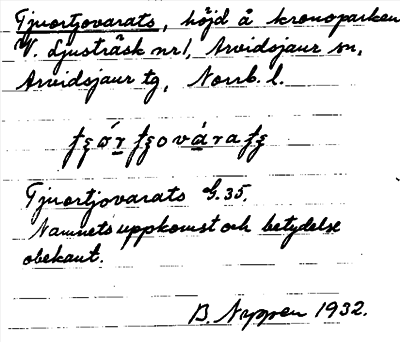 Tjuortjovarats, höjd å kronoparken
V. Ljusträsk nr 1, Arvidsjaur sn,
Arvidsjaur tg, Norrb. l.
Tjuortjovarats G.35.
Namnets uppkomst och betydelse
obekant.
B. Nyppen 1932.